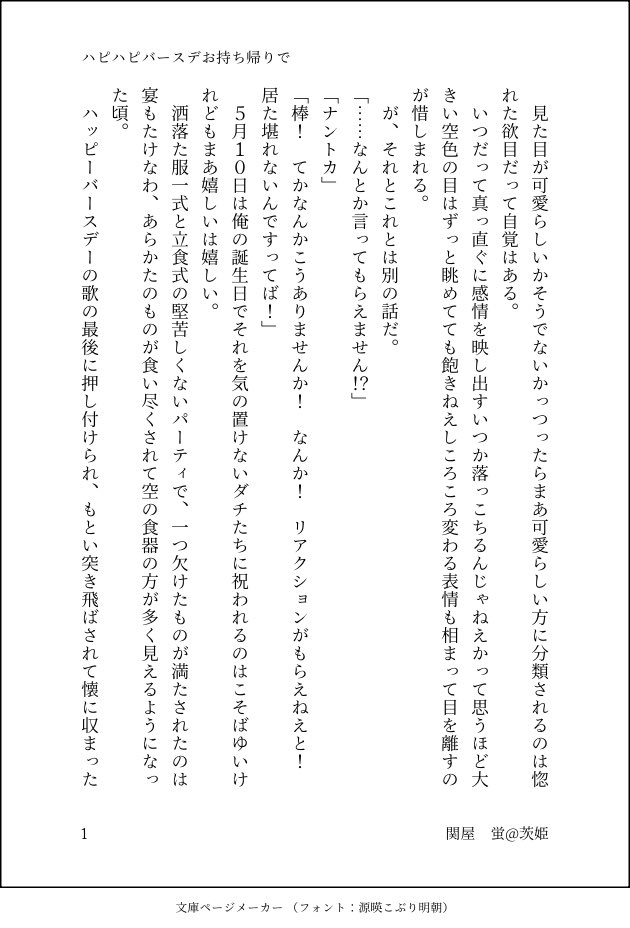 ハピハピバースデお持ち帰りで
　見た目が可愛らしいかそうでないかっつったらまあ可愛らしい方に分類されるのは惚
れた欲目だって自覚はある。
　いつだって真っ直ぐに感情を映し出すいつか落っこちるんじゃねえかって思うほど大
きい空色の目はずっと眺めてても飽きねえしころころ変わる表情も相まって目を離すの
が惜しまれる。
　が、それとこれとは別の話だ。
「……なんとか言ってもらえません!?」
「ナントカ」
「棒！　てかなんかこうありませんか！　なんか！　リアクションがもらえねえと！
居た堪れないんですってば！」
　５月１０日は俺の誕生日でそれを気の置けないダチたちに祝われるのはこそばゆいけ
れどもまあ嬉しいは嬉しい。
　洒落た服一式と立食式の堅苦しくないパーティで、一つ欠けたものが満たされたのは
宴もたけなわ、あらかたのものが食い尽くされて空の食器の方が多く見えるようになっ
た頃。
　ハッピーバースデーの歌の最後に押し付けられ、もとい突き飛ばされて懐に収まった
1
関屋　蛍@茨姫
文庫ページメーカー （フォント：源暎こぶり明朝）